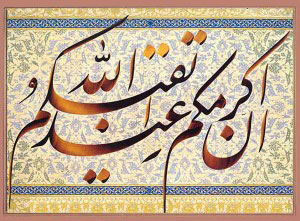 ان اکرمکم عند الله اتقیکم